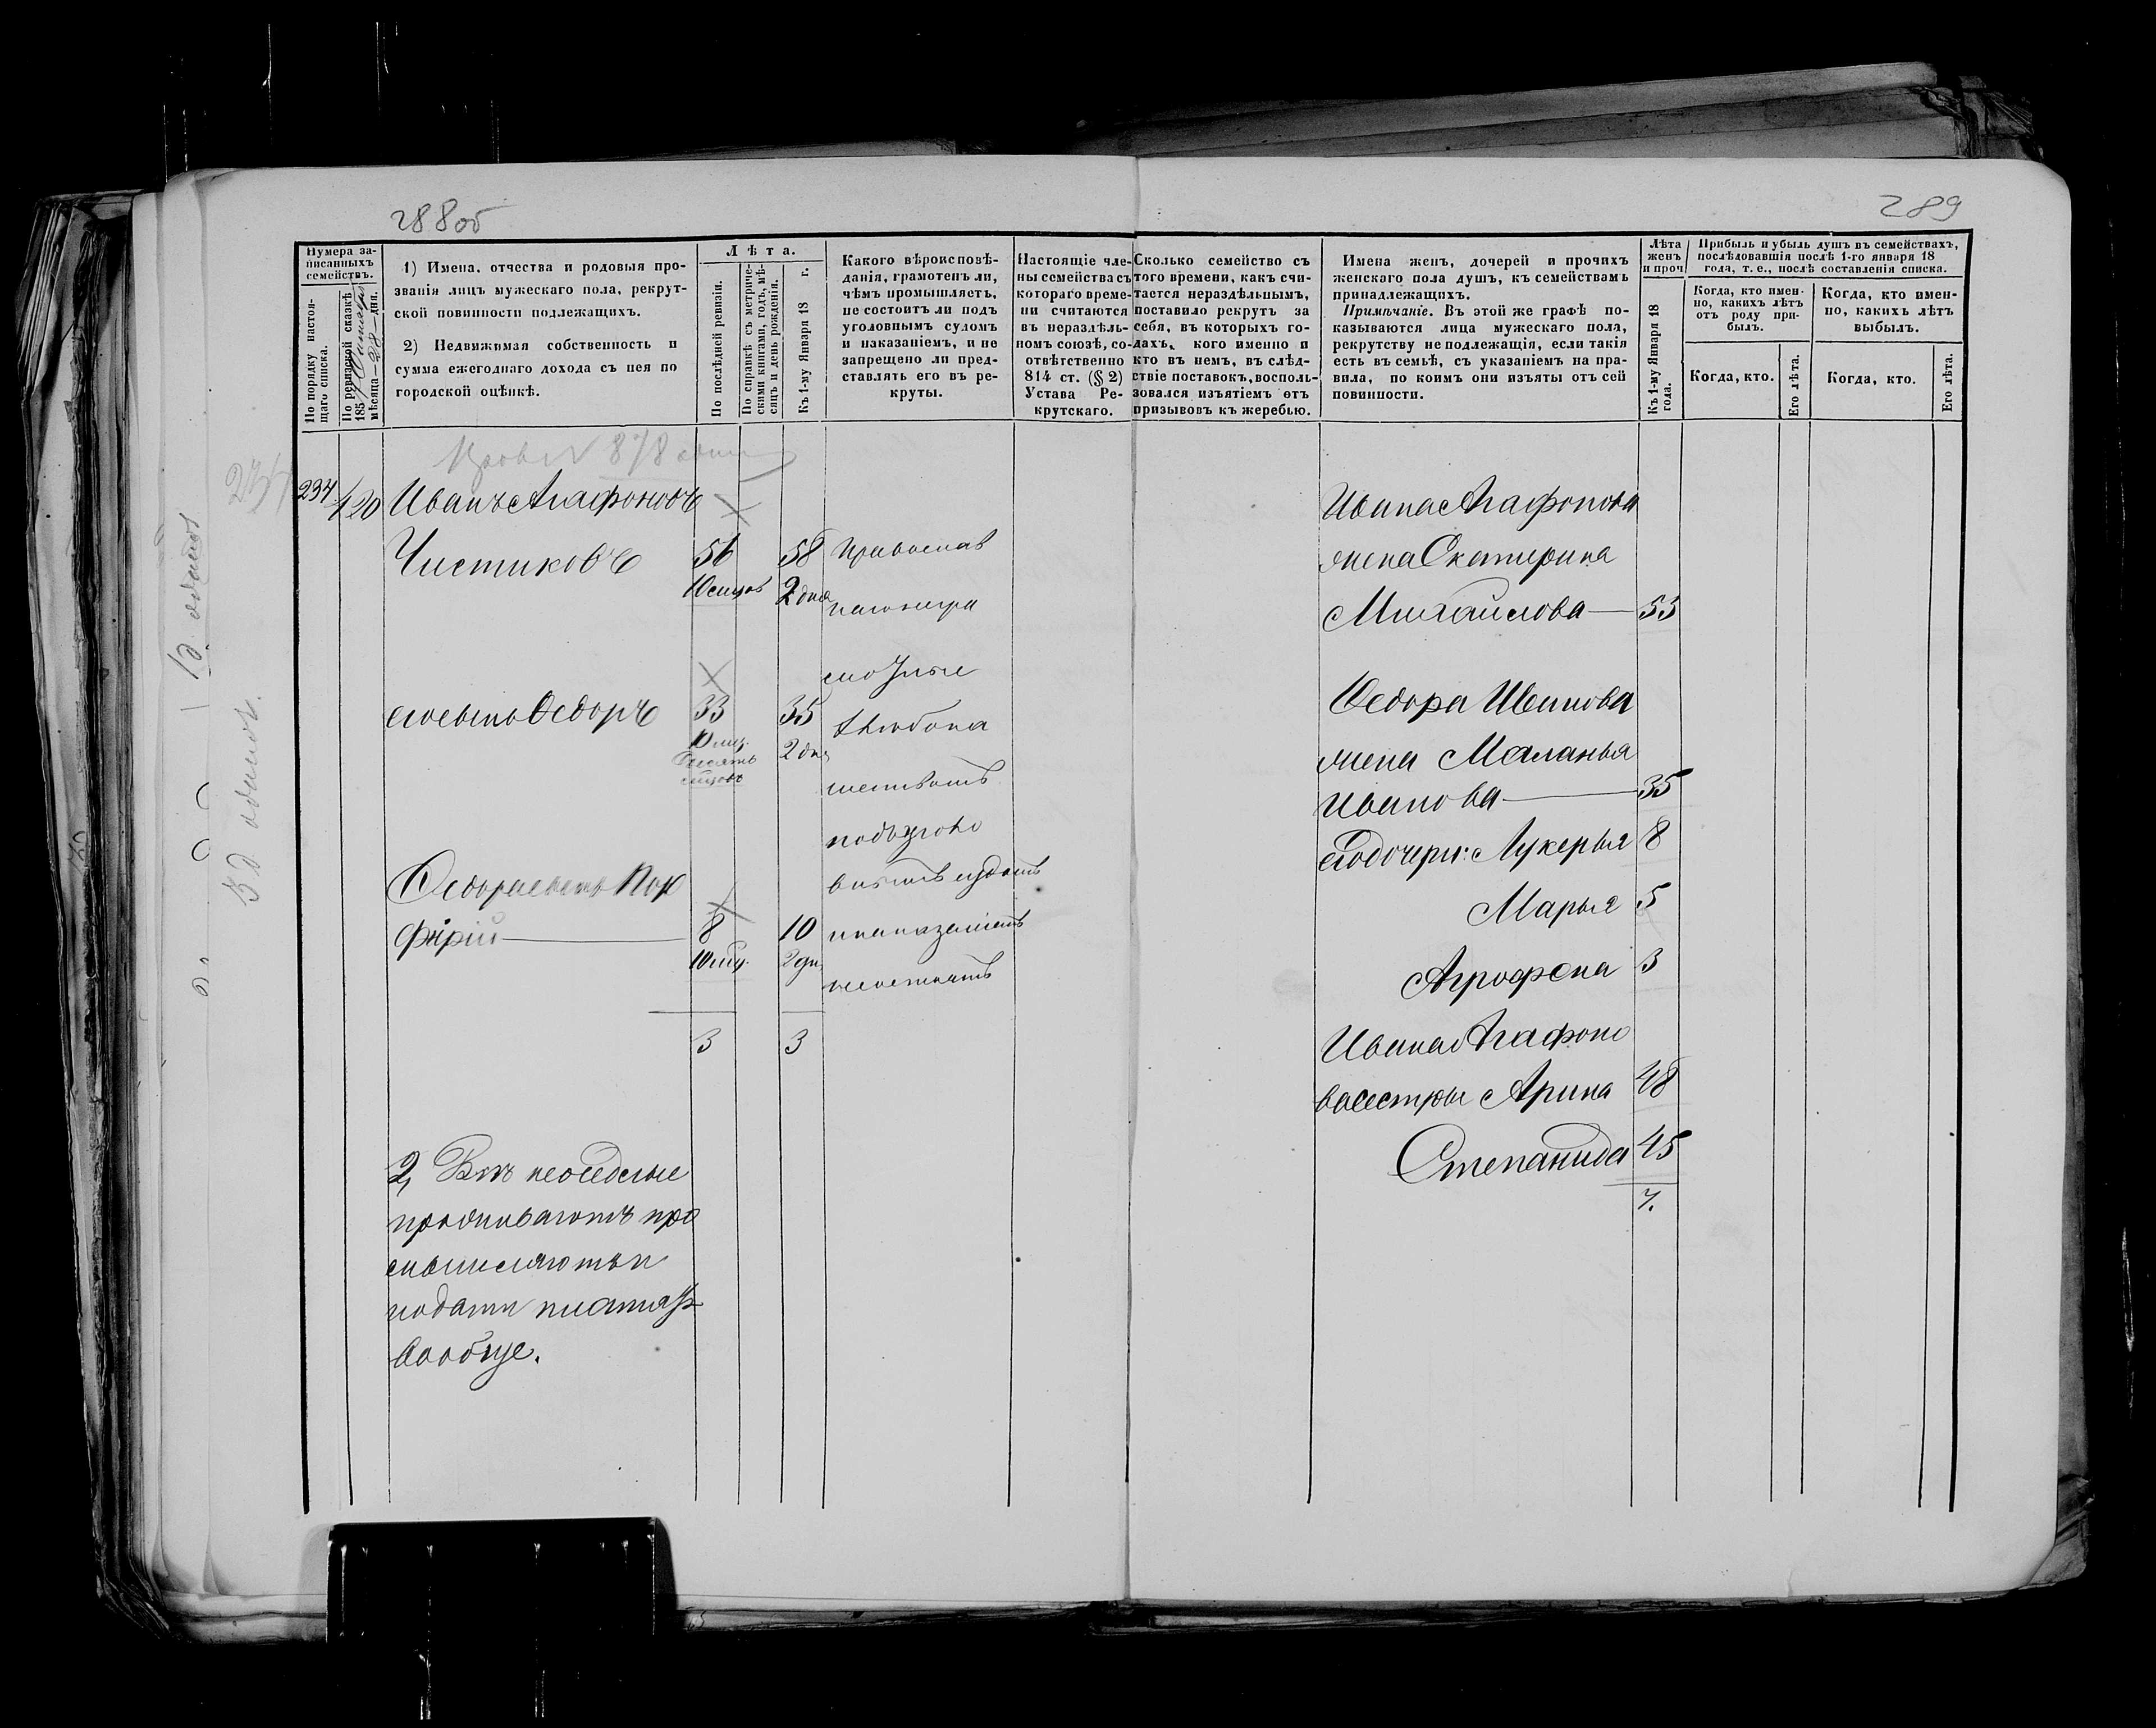 288 об
289
Нумера за-
писанныхъ
семействъ.
По порядку настоя-
щаго списка.
По ревизской сказкѣ
185
мѣсяца—28—дня.
1) Имена, отчества и родовыя про-
званія лицъ мужескаго пола, рекрут-
ской повинности подлежащихъ.
2) Недвижимая собственность и
сумма ежегоднаго дохода съ нея по
городской оцѣнкѣ.
Лѣта.
По послѣдней ревизіи.
По справкѣ съ метриче-
скими книгами, годъ, мѣ-
сяцъ и день рожденія.
Къ 1-му Января 18 г.
Какого вѣроисповѣ-
данія, грамотенъ ли,
чѣмъ промышляетъ,
не состоитъ ли подъ
уголовнымъ судомъ
и наказаніемъ, и не
запрещено ли пред-
ставлять его въ ре-
круты.
Настоящіе чле-
ны семейства съ
котораго време-
ни считаются
въ нераздѣль-
номъ союзѣ, со-
отвѣтственно
814 ст. (§ 2)
Устава Ре-
крутскаго.
Сколько семейство съ
того времени, какъ счи-
тается нераздѣльнымъ,
поставило рекрутъ за
себя, въ которыхъ го-
дахъ, кого именно и
кто въ немъ, въ слѣд-
ствіе поставокъ, восполь-
зовался изъятіемъ отъ
призывовъ къ жеребью.
Имена женъ, дочерей и прочихъ
женскаго пола душъ, къ семействамъ
принадлежащихъ.
Примѣчаніе. Въ этой же графѣ по-
казываются лица мужескаго пола,
рекрутству не подлежащія, если такія
есть въ семьѣ, съ указаніемъ на пра-
вила, по коимъ они изъяты отъ сей
повинности.
Лѣта
женъ
и проч
Къ 1-му Января 18
года.
Прибыль и убыль душъ въ семействахъ,
послѣдовавшія послѣ 1-го января 18
года, т. е., послѣ составленія списка.
Когда, кто имен-
но, какихъ лѣтъ
отъ роду при-
былъ.
Когда, кто.
Его лѣта.
Когда, кто имен-
но, какихъ лѣтъ
выбылъ.
Когда, кто.
Его лѣта.
878
234 120 Иванъ Агафоновъ
Чистиковъ 56 58 Православ
2 дня
его сынъ Ѳедоръ 33 35
10 мц. 2 дня
Ѳедора сынъ Пор
фирій 8 10
10 мц. 2 дн.
3 3
2, Всѣ неоседлые
проживаютъ про
мышляютъ и
подати платятъ
вообще.
Ивана Агафонова
жена Екатерина
Михайлова 55
Ѳедора Иванова
жена Маланья
Иванова 35
его дочери: Лукерья 8
Марья 5
Агрофена 3
Ивана Агафоно
ва сестры Арина 48
Степанида 45
7.